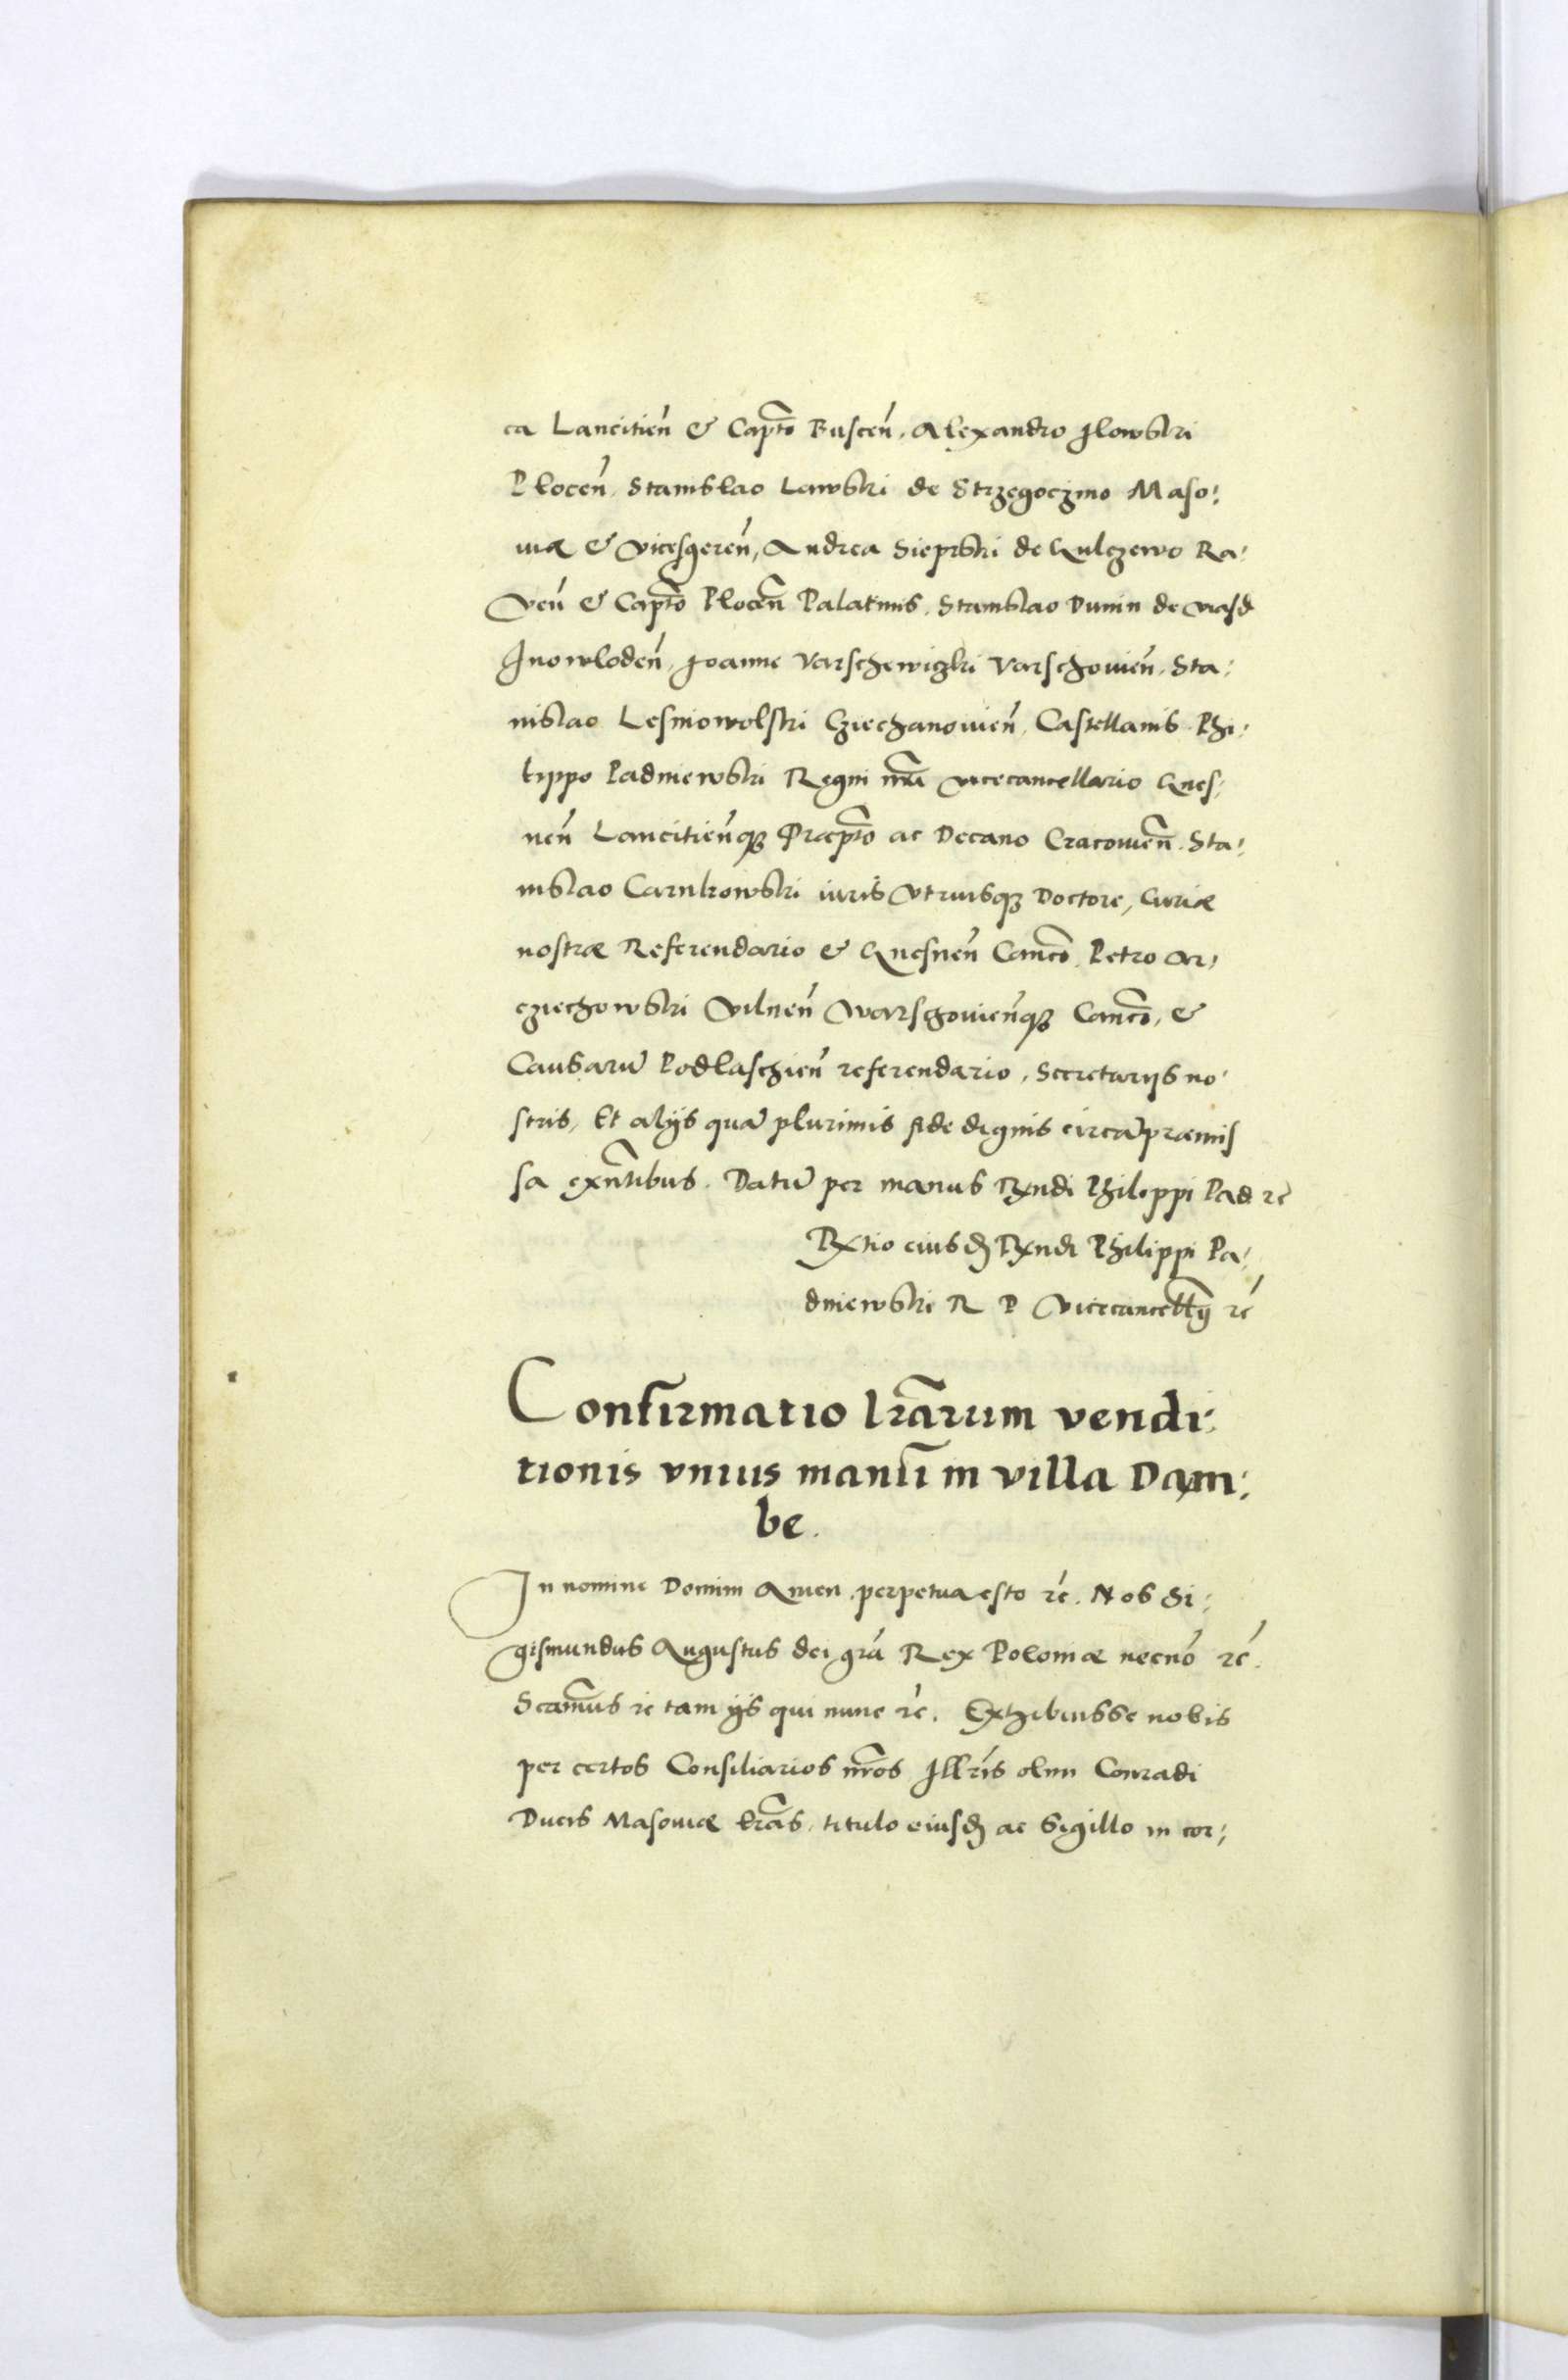 ca Lancitień & Capt͠o Buscen̄. Alexandro Ilowski
Plocen̄. Stanislao Lawski de Strzegoczino Maso:
uiæ & vicesgeren̄, Andrea Sieprski de Gulczewo Ra:
ven̄ & Capt͠o Plocen̄ Palatinis. Stanislao Dunin de viasd
Inowloden̄, Joanne Varschewiczki Varschouien̄. Sta:
nislao Lesniowolski Cziechanouien̄. Castellanis. Phi:
lippo Padniewski Regni nr̃i vicecancellario Gnes:
nen̄ Lancitien̄qꝫ Præpt͠o ac Decano Cracouien̄. Sta:
nislao Carnkowski iuris vtriusqꝫ Doctore, Curiæ
nostræ Referendario & Gnesnen̄ Canc͠o. Petro Ar:
cziechowski Vilnen̄ Warschouien̄qꝫ Canc͠o, &
Causarū Podlaschien̄ referendario. Secretarijs no:
stris, Et alijs quā plurimis fide dignis circa præmis
sa exn̄tibus. Datū per manus Rx̄ndi Philippi Pad rc̄
Rx̄tio eiusdꝫ Rx̄ndi Philippi Pa:
dniewski R P Vicecancell͠ij rc̄
Confirmatio lr̃arum vendi:
tionis vnius mansi in villa Dam:
be.
In nomine Domini Amen. perpetua esto rc̄. Nos Si:
gismundus Augustus dei gr̃a Rex Poloniæ necnō rc̄.
Scam͠us rc̄ tam ijs qui nunc rc̄. Exhibuisse nobis
per certos Consiliarios nr̃os Illr̃is olim Conradi
Ducis Masouiæ lr̃as, titulo eiusdꝫ ac Sigillo in cor: